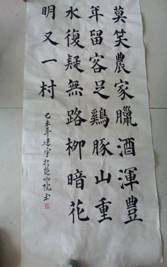 莫笑農家臘酒渾豐
年留客足鷄豚山重
水復疑無路柳暗花
明又一村
未年